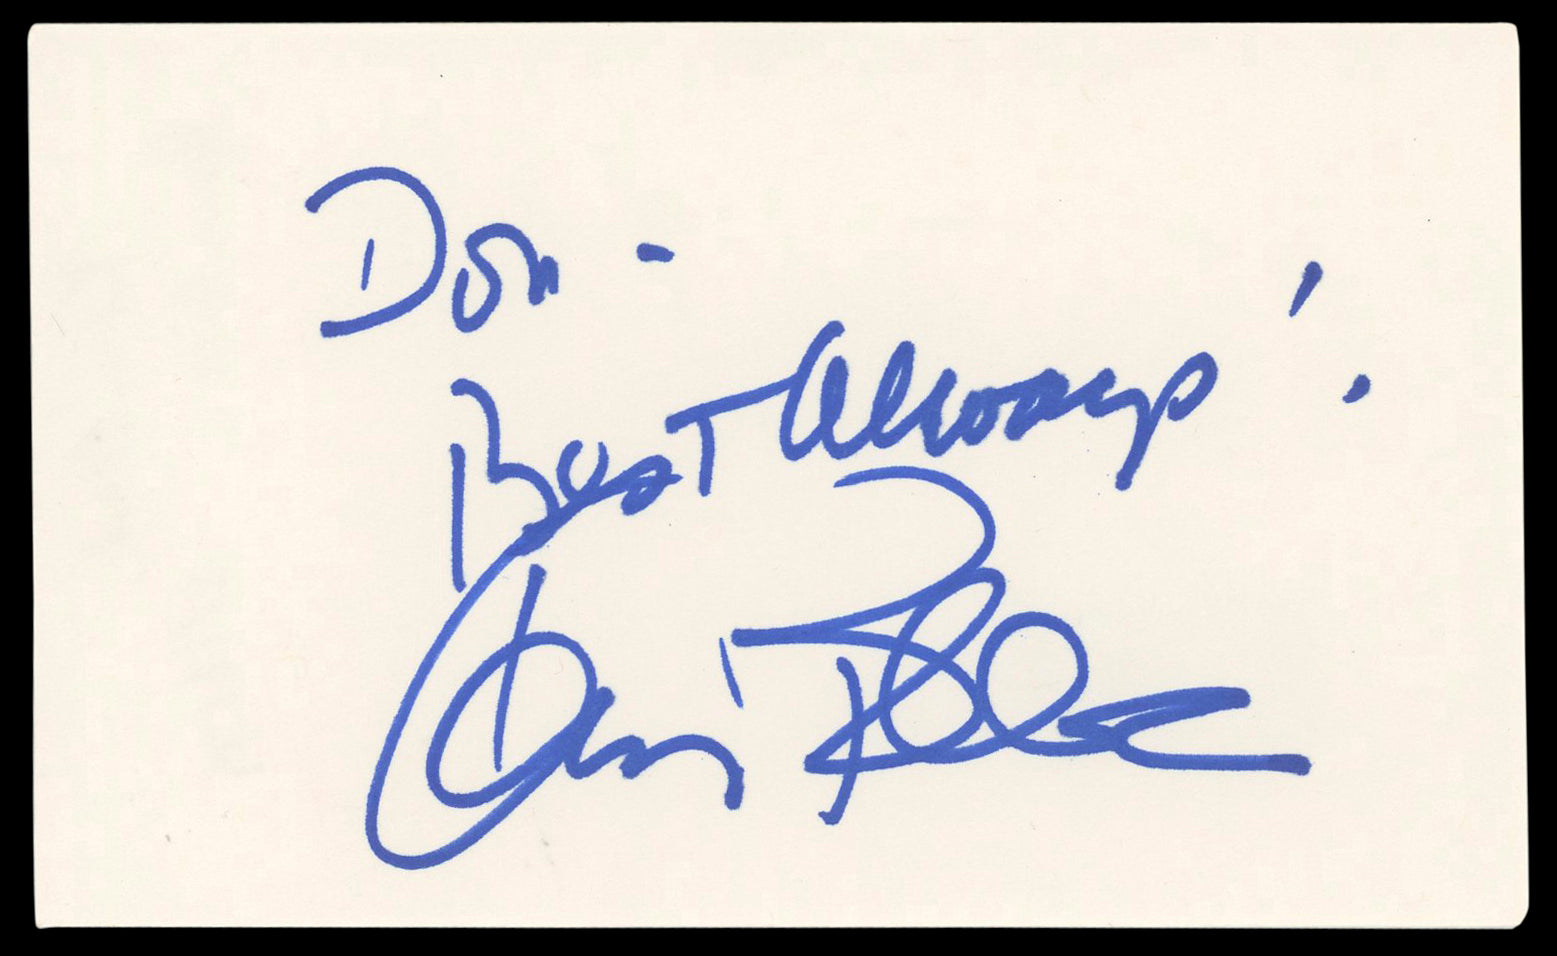 Don -
Best Always!